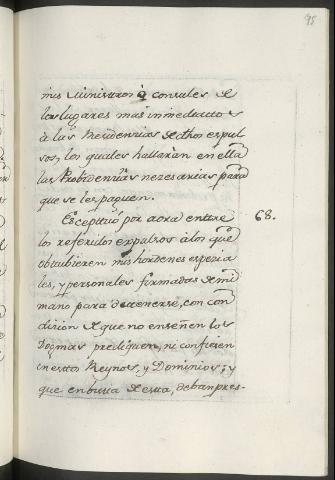 95
mis Ministros ò consules de
los lugares mas inmediactos
à las Residencias de dhos espul
sos, los quales hallaràn en ella
las Probidencias nezesarias para
que se les paguen.
Esceptuó por aora entre 68.
los referidos expulsos à los que
obtubieren mis hórdenes espezia
les, y personales firmadas de mi
mano para detenerse, con con
dizion de que no enseñen los
Dogmas prediquen, ni confiesen
in esttos Reynos, y Dominios; y
que en busca de esta, deban pres-